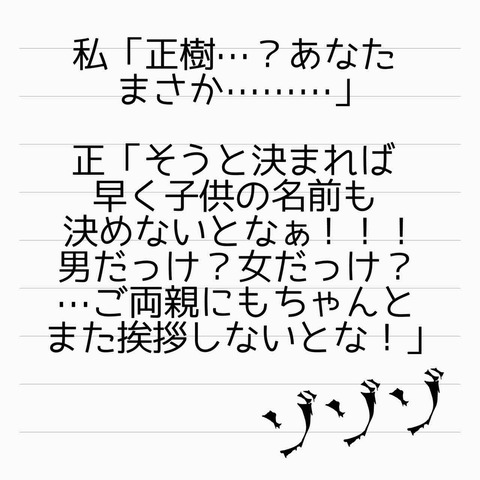 私「正樹…？あなた
まさか………」
正「そうと決まれば
早く子供の名前も
決めないとなぁ！！！
男だっけ？女だっけ？
…ご両親にもちゃんと
また挨拶しないとな！」
ゾゾゾ